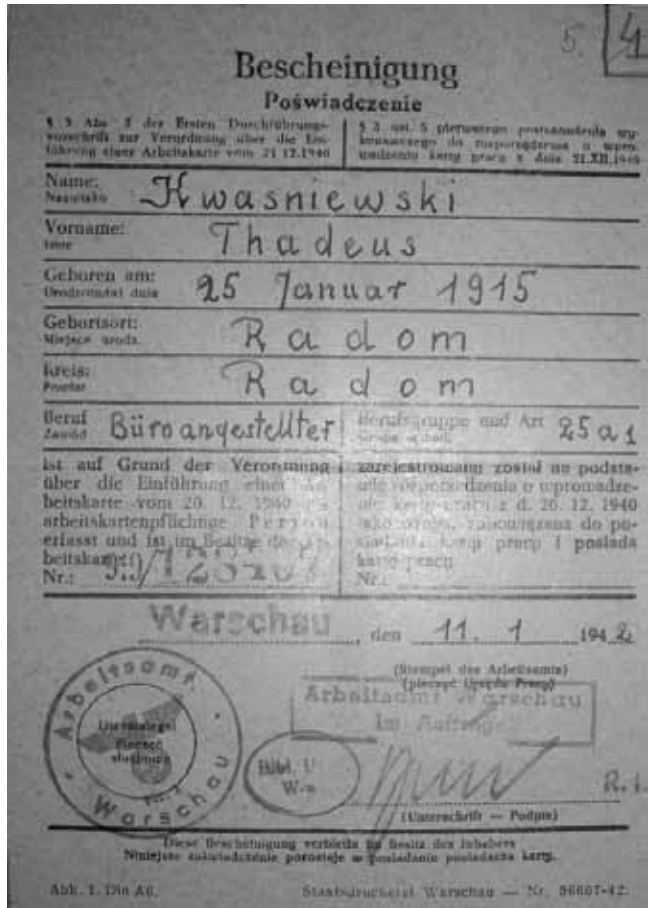 5. 4
Bescheinigung
Poświadczenie
§ 3 Abs. 5 der Ersten Durchführungs-
vorschrift zur Verordnung über die Ein-
führung einer Arbeitskarte vom 21.12.1940
§ 3 ust. 5 pierwszego postanowienia wy-
konawczego do rozporządzenia o wpro-
wadzeniu karty pracy z dnia 21.XII.1940
Name:
Nazwisko
Kwasniewski
Vorname:
Imię
Thadeus
Geboren am:
Urodzony(a) dnia
25 Januar 1915
Geburtsort:
Miejsce urodz.
Radom
Kreis:
Powiat
Radom
Beruf
Zawód
Büroangestellter
Berufsgruppe und Art
25 a 1
ist auf Grund der Verordnung
über die Einführung einer Ar-
beitskarte vom 20. 12. 1940 als
arbeitskartenpflichtige Person
erfasst und ist im Besitze der Ar-
beitskarte
Nr.:
zarejestrowany został na podsta-
wie rozporządzenia o wprowadze-
niu karty pracy z d. 20. 12. 1940
jako osoba, zobowiązana do po-
siadania karty pracy i posiada
kartę pracy
Nr.:
Warschau, den 11. 1 1942
(Stempel des Arbeitsamts)
(pieczęć Urzędu Pracy)
Arbeitsamt Warschau
Im Auftrage
Arbeitsamt
Warschau
Bibl. U
W-a
R.I.
(Unterschrift — Podpis)
Diese Bescheinigung verbleibt im Besitz des Inhabers
Niniejsze zaświadczenie pozostaje w posiadaniu posiadacza karty.
Abk. 1. Din A6.
Staatsdruckerei Warschau — Nr. 96607-42.